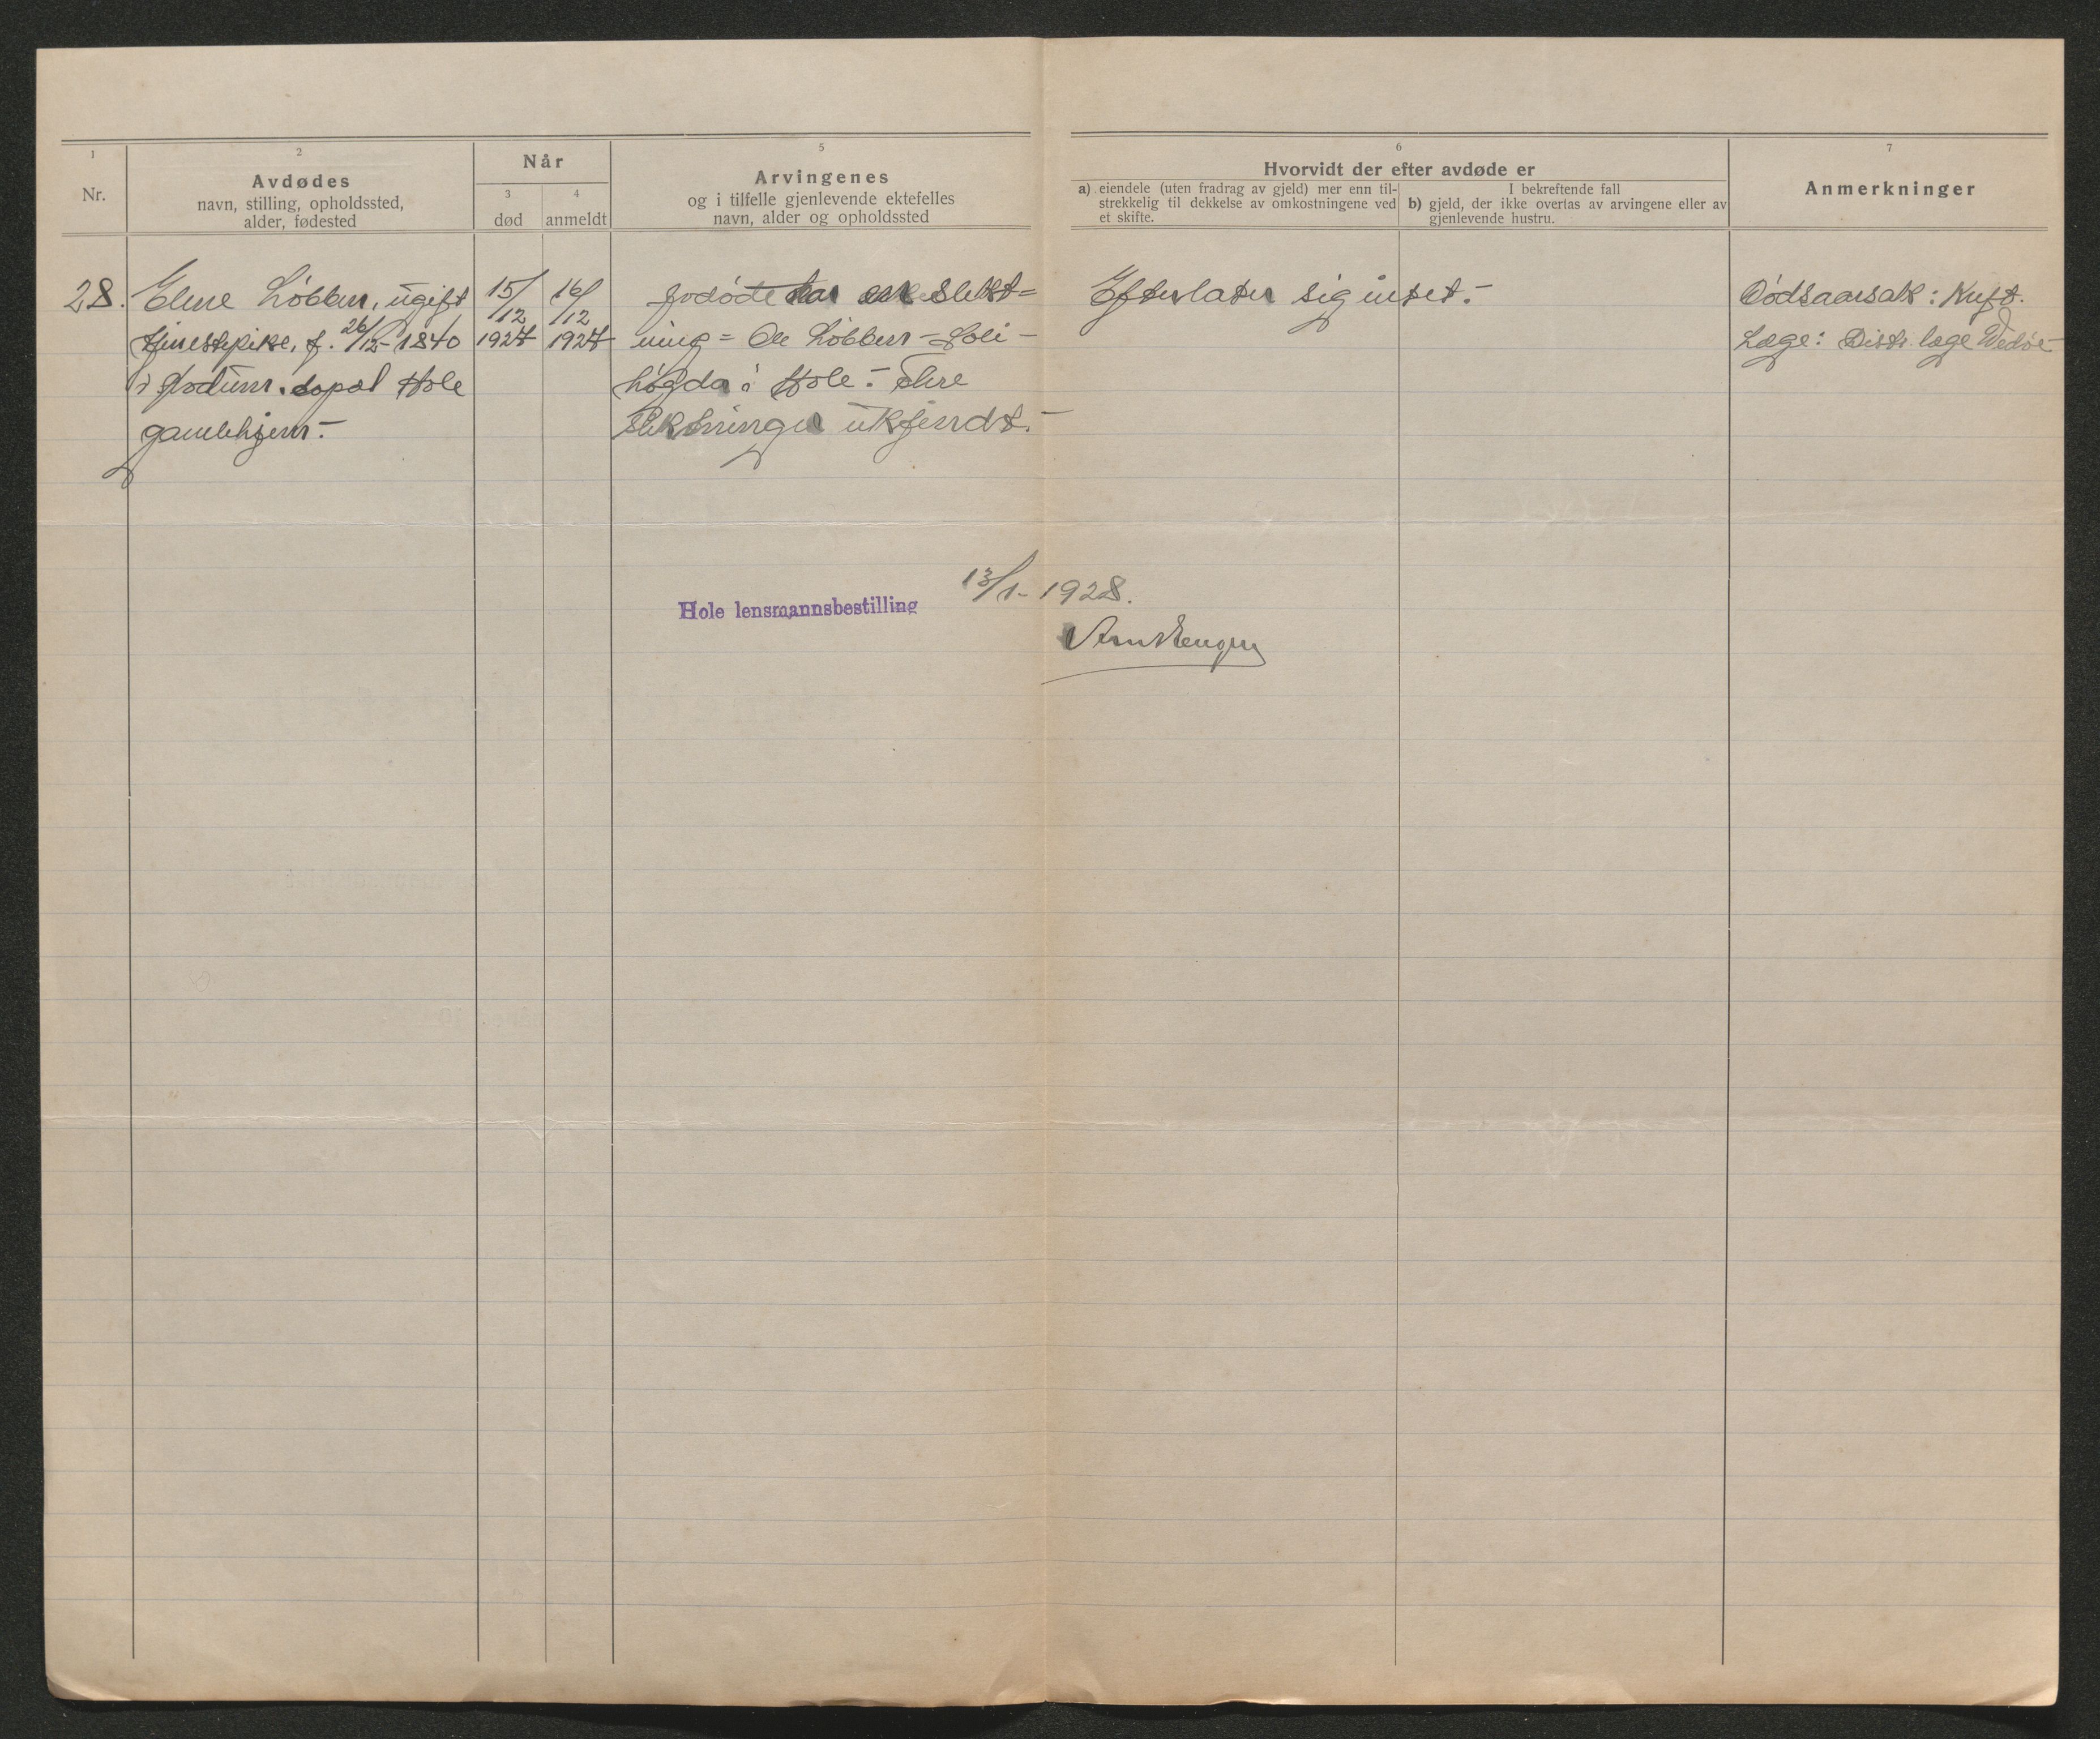 1
Nr.
2
Avdødes
navn, stilling, opholdssted,
alder, fødested
Når
3
død
4
anmeldt
5
Arvingenes
og i tilfelle gjenlevende ektefelles
navn, alder og opholdssted
6
Hvorvidt der efter avdøde er
a) eiendele (uten fradrag av gjeld) mer enn til-
strekkelig til dekkelse av omkostningene ved
et skifte.
I bekreftende fall
b) gjeld, der ikke overtas av arvingene eller av
gjenlevende hustru.
7
Anmerkninger
28.
Eline Løbben, ugift
tjenestepike, f. 26/12-1840
i Modum.
Hole
gamlehjem.-
15/12
1927
16/12
1927
avdøde har en slekt=
ning = Ole Løbben - Soli-
høgda i Hole.- Flere
slektninger ukjendt.-
Efterlater sig intet.-
Dødsaarsak:
Læge: Distr. læge Wedøe
Hole lensmannsbestilling
13/1-1928.